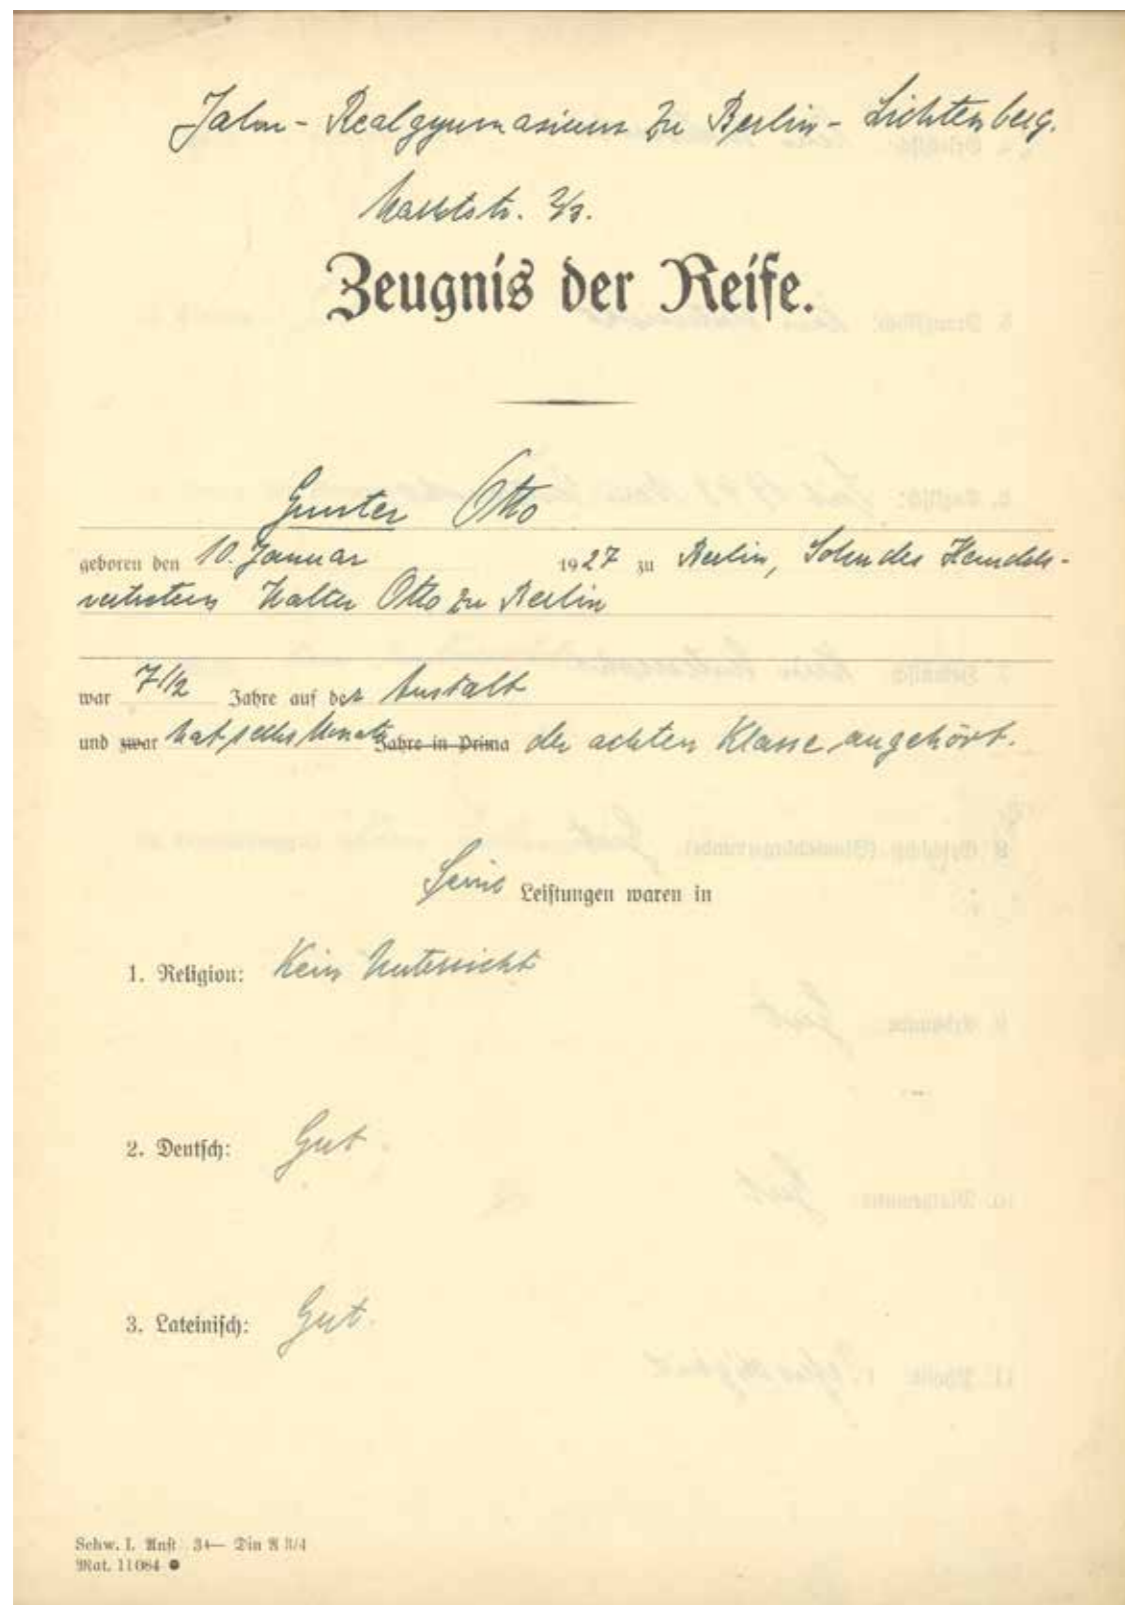 Jahn-Realgymnasium zu Berlin-Lichtenberg.
Marktstr. 2/3.
Zeugnis der Reife.
Gunter Otto
geboren den 10. Januar 1927 zu Berlin, Sohn des Handels-
vertreters Walter Otto zu Berlin
war 7 1/2 Jahre auf der Anstalt
und zwar hat sechs Monate Jahre in Prima der achten Klasse angehört.
Seine Leistungen waren in
1. Religion: Kein Unterricht
2. Deutsch: Gut.
3. Lateinisch: Gut.
Schw. I. Anst. 34— Din A 3/4
Mat. 11084